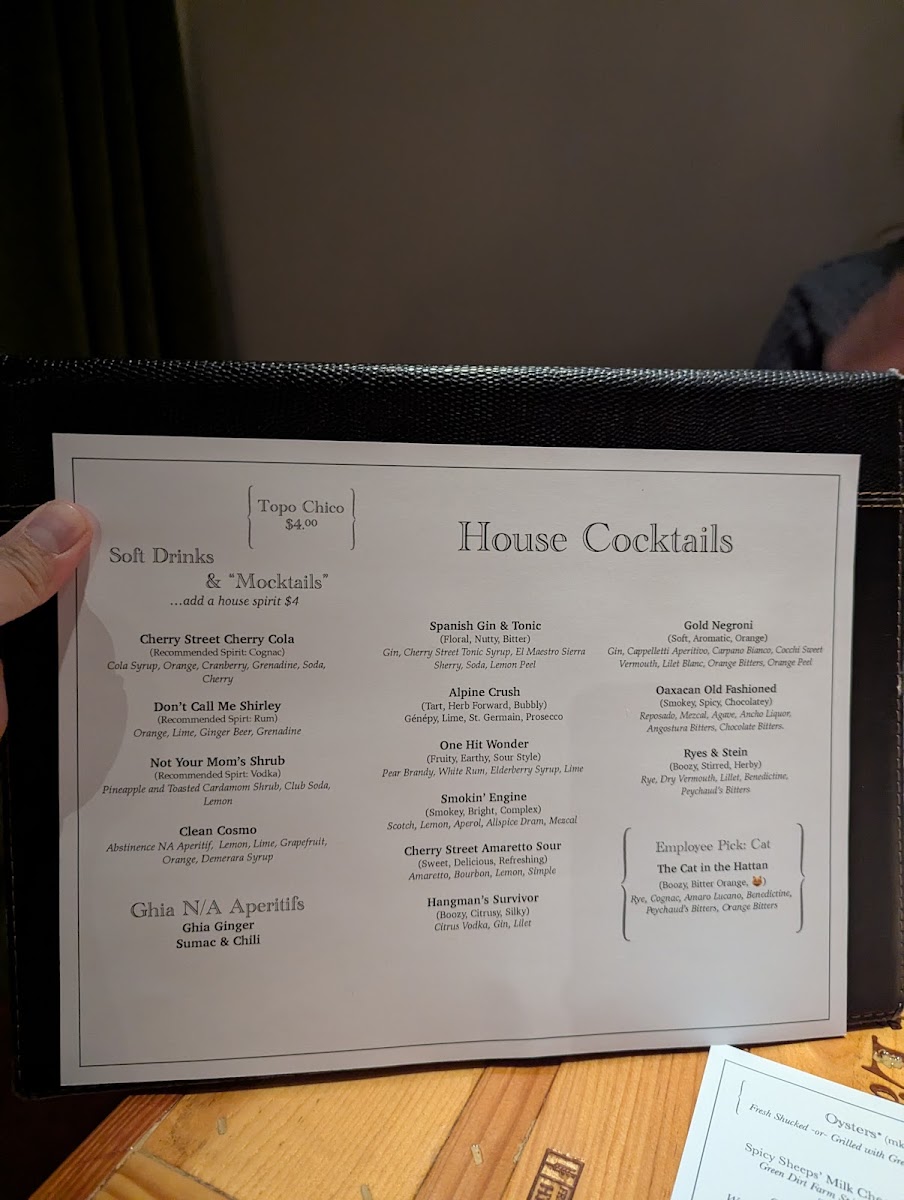 Topo Chico
$4.00
Soft Drinks
& “Mocktails”
...add a house spirit $4
Cherry Street Cherry Cola
(Recommended Spirit: Cognac)
Cola Syrup, Orange, Cranberry, Grenadine, Soda,
Cherry
Don’t Call Me Shirley
(Recommended Spirt: Rum)
Orange, Lime, Ginger Beer, Grenadine
Not Your Mom’s Shrub
(Recommended Spirt: Vodka)
Pineapple and Toasted Cardamom Shrub, Club Soda,
Lemon
Clean Cosmo
Abstinence NA Aperitif, Lemon, Lime, Grapefruit,
Orange, Demerara Syrup
Ghia N/A Aperitifs
Ghia Ginger
Sumac & Chili
House Cocktails
Spanish Gin & Tonic
(Floral, Nutty, Bitter)
Gin, Cherry Street Tonic Syrup, El Maestro Sierra
Sherry, Soda, Lemon Peel
Alpine Crush
(Tart, Herb Forward, Bubbly)
Génépy, Lime, St. Germain, Prosecco
One Hit Wonder
(Fruity, Earthy, Sour Style)
Pear Brandy, White Rum, Elderberry Syrup, Lime
Smokin’ Engine
(Smokey, Bright, Complex)
Scotch, Lemon, Aperol, Allspice Dram, Mezcal
Cherry Street Amaretto Sour
(Sweet, Delicious, Refreshing)
Amaretto, Bourbon, Lemon, Simple
Hangman’s Survivor
(Boozy, Citrusy, Silky)
Citrus Vodka, Gin, Lilet
Gold Negroni
(Soft, Aromatic, Orange)
Gin, Cappelletti Aperitivo, Carpano Bianco, Cocchi Sweet
Vermouth, Lilet Blanc, Orange Bitters, Orange Peel
Oaxacan Old Fashioned
(Smokey, Spicy, Chocolatey)
Reposado, Mezcal, Agave, Ancho Liquor,
Angostura Bitters, Chocolate Bitters.
Ryes & Stein
(Boozy, Stirred, Herby)
Rye, Dry Vermouth, Lillet, Benedictine,
Peychaud’s Bitters
Employee Pick: Cat
The Cat in the Hattan
(Boozy, Bitter Orange, 😸)
Rye, Cognac, Amaro Lucano, Benedictine,
Peychaud’s Bitters, Orange Bitters
Oysters*
Fresh Shucked -or- Grilled with
Spicy Sheeps’ Milk
Green Dirt Farm